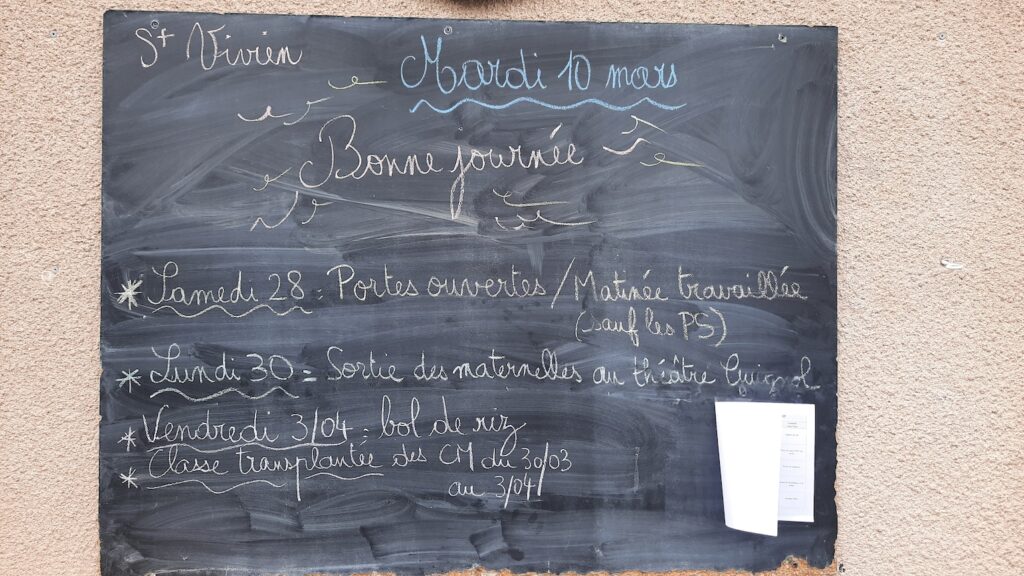 St Vivien
Mardi 10 mars
Bonne journée
* Samedi 28 : Portes ouvertes / Matinée travaillée
(sauf les PS)
* Lundi 30 = Sortie des maternelles au théâtre Guignol
* Vendredi 3/04 : bol de riz
* Classe transplantée des CM du 30/03
au 3/04